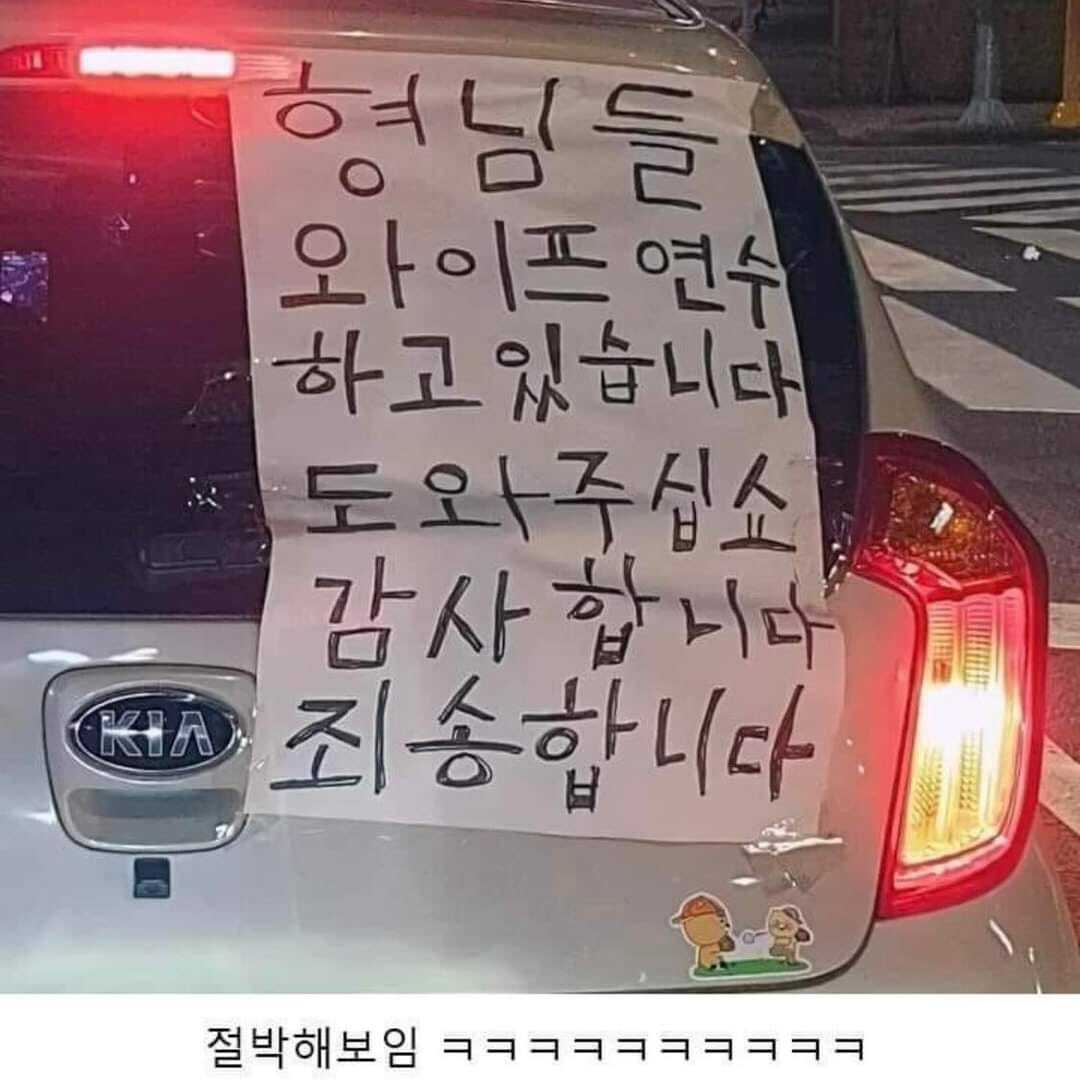 형님들
와이프 연수
하고 있습니다
도와주십쇼
감사합니다
죄송합니다
KIA
절박해보임 ㅋㅋㅋㅋㅋㅋㅋㅋㅋㅋ